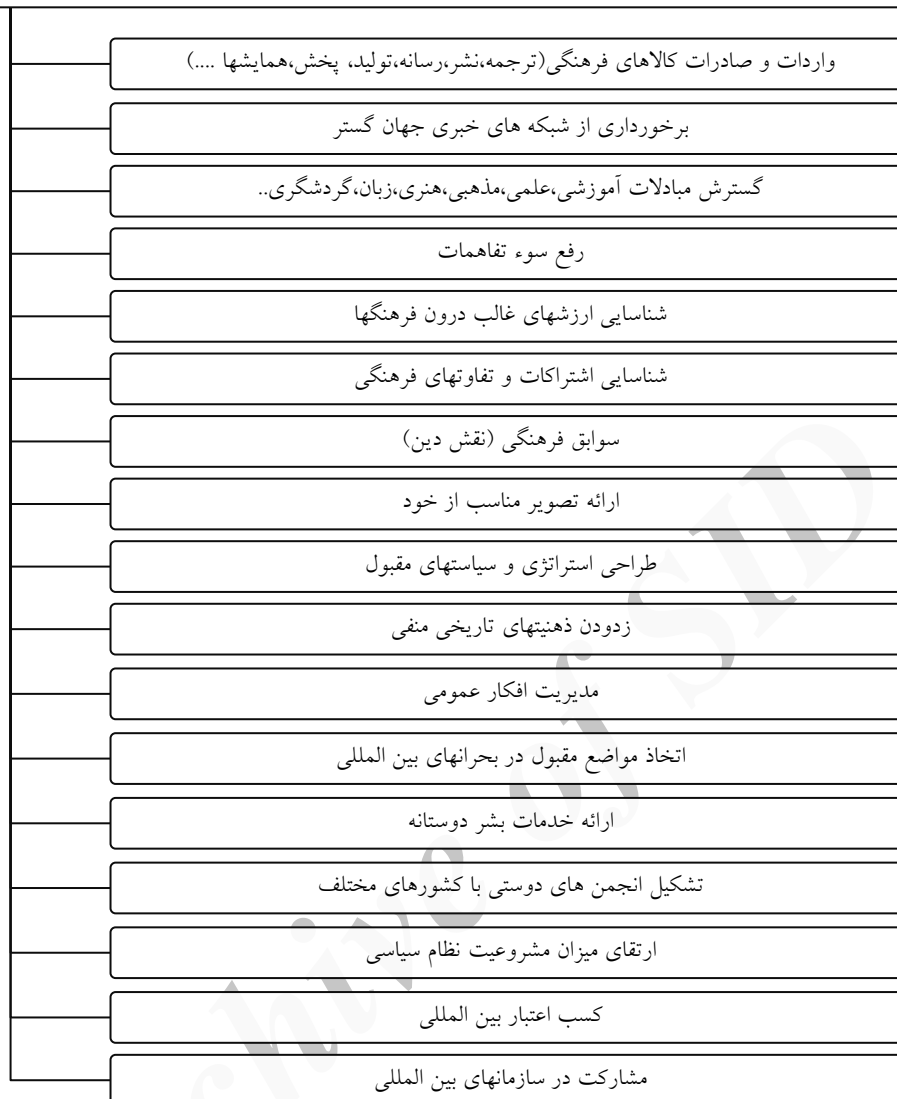 واردات و صادرات کالاهای فرهنگی(ترجمه،نشر،رسانه،تولید، پخش،همایشها ....)
برخورداری از شبکه های خبری جهان گستر
گسترش مبادلات آموزشی،علمی،مذهبی،هنری،زبان،گردشگری..
رفع سوء تفاهمات
شناسایی ارزشهای غالب درون فرهنگها
شناسایی اشتراکات و تفاوتهای فرهنگی
سوابق فرهنگی (نقش دین)
ارائه تصویر مناسب از خود
طراحی استراتژی و سیاستهای مقبول
زدودن ذهنیتهای تاریخی منفی
مدیریت افکار عمومی
اتخاذ مواضع مقبول در بحرانهای بین المللی
ارائه خدمات بشر دوستانه
تشکیل انجمن های دوستی با کشورهای مختلف
ارتقای میزان مشروعیت نظام سیاسی
کسب اعتبار بین المللی
مشارکت در سازمانهای بین المللی
chive of SID